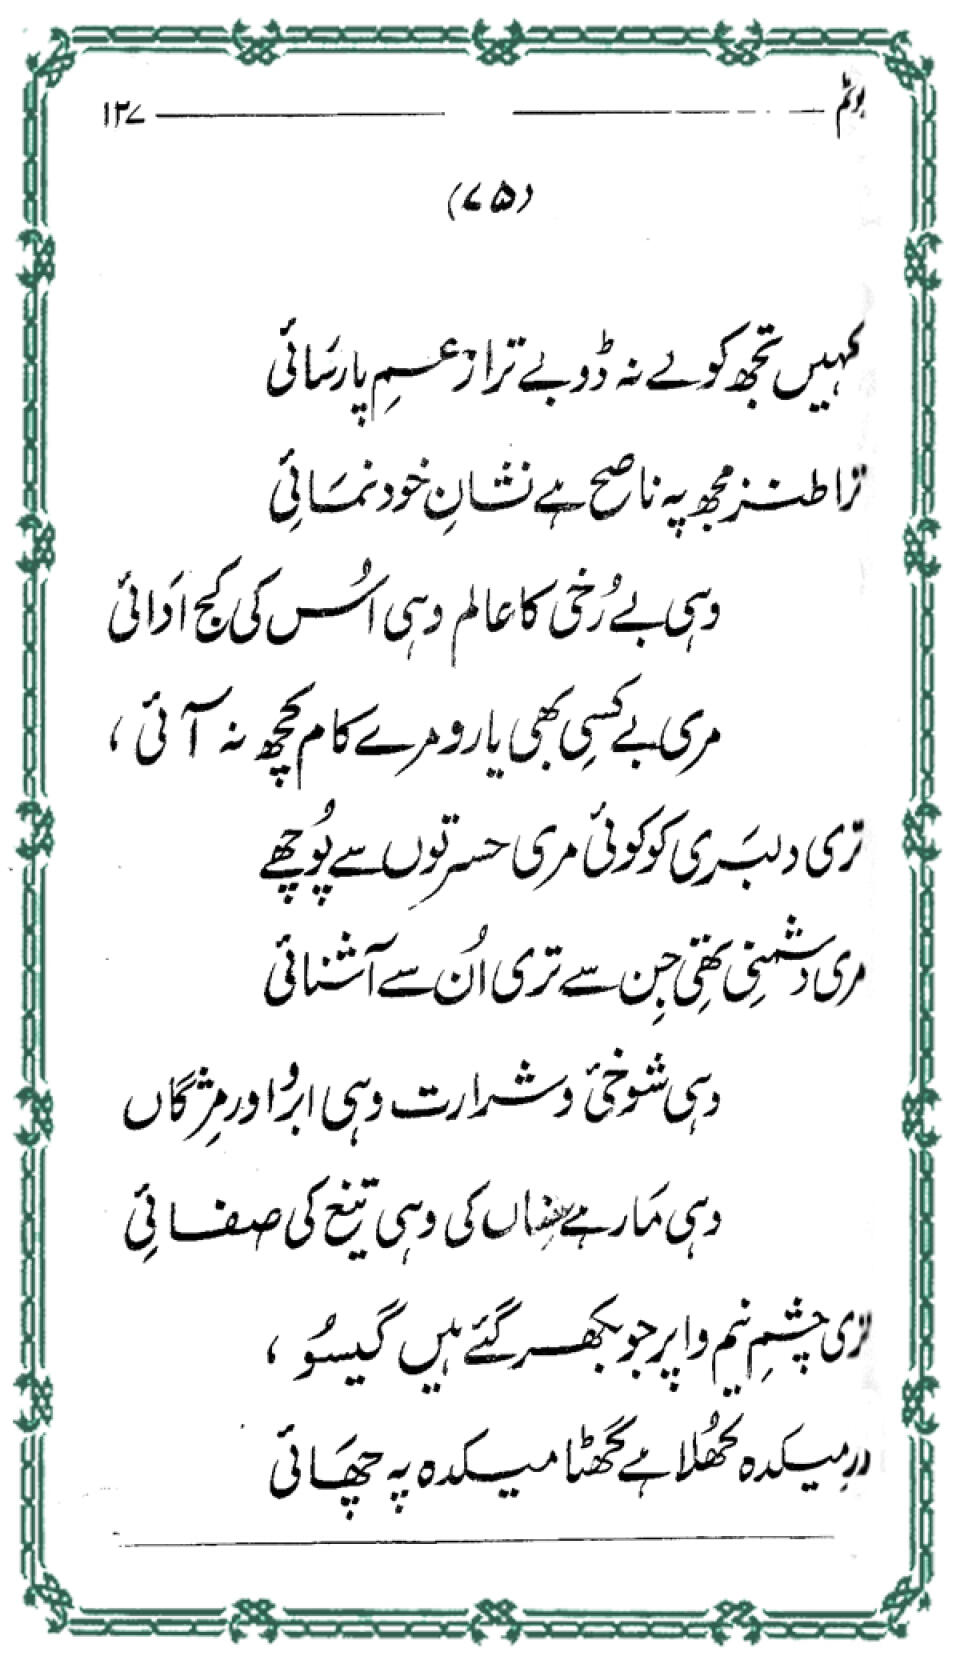 ۱۳۷
(۷۵)
کہیں تجھ کو لے نہ ڈوبے ترا زعمِ پارسَائی
ترا طنز مجھ پہ ناصح ہے نشانِ خود نمَائی
وہی بے رُخی کا عالم وہی اُس کی کج اَدائی
مری بے کسِی بھی یارو مرے کام کچھ نہ آئی ،
تری دلبَری کو کوئی مری حسرتوں سے پُوچھے
مری دشمنی تھی جِن سے تری اُن سے آشنائی
وہی شوخیٔ و شرارت وہی ابرُو اور مِژگاں
وہی مَار ہے کی وہی تیغ کی صفائی
تری چشمِ نیم وا پر جو بکھر گئے ہیں گیسُو ،
درِ میکدہ کھُلا ہے گھٹا میکدہ پہ چھَائی